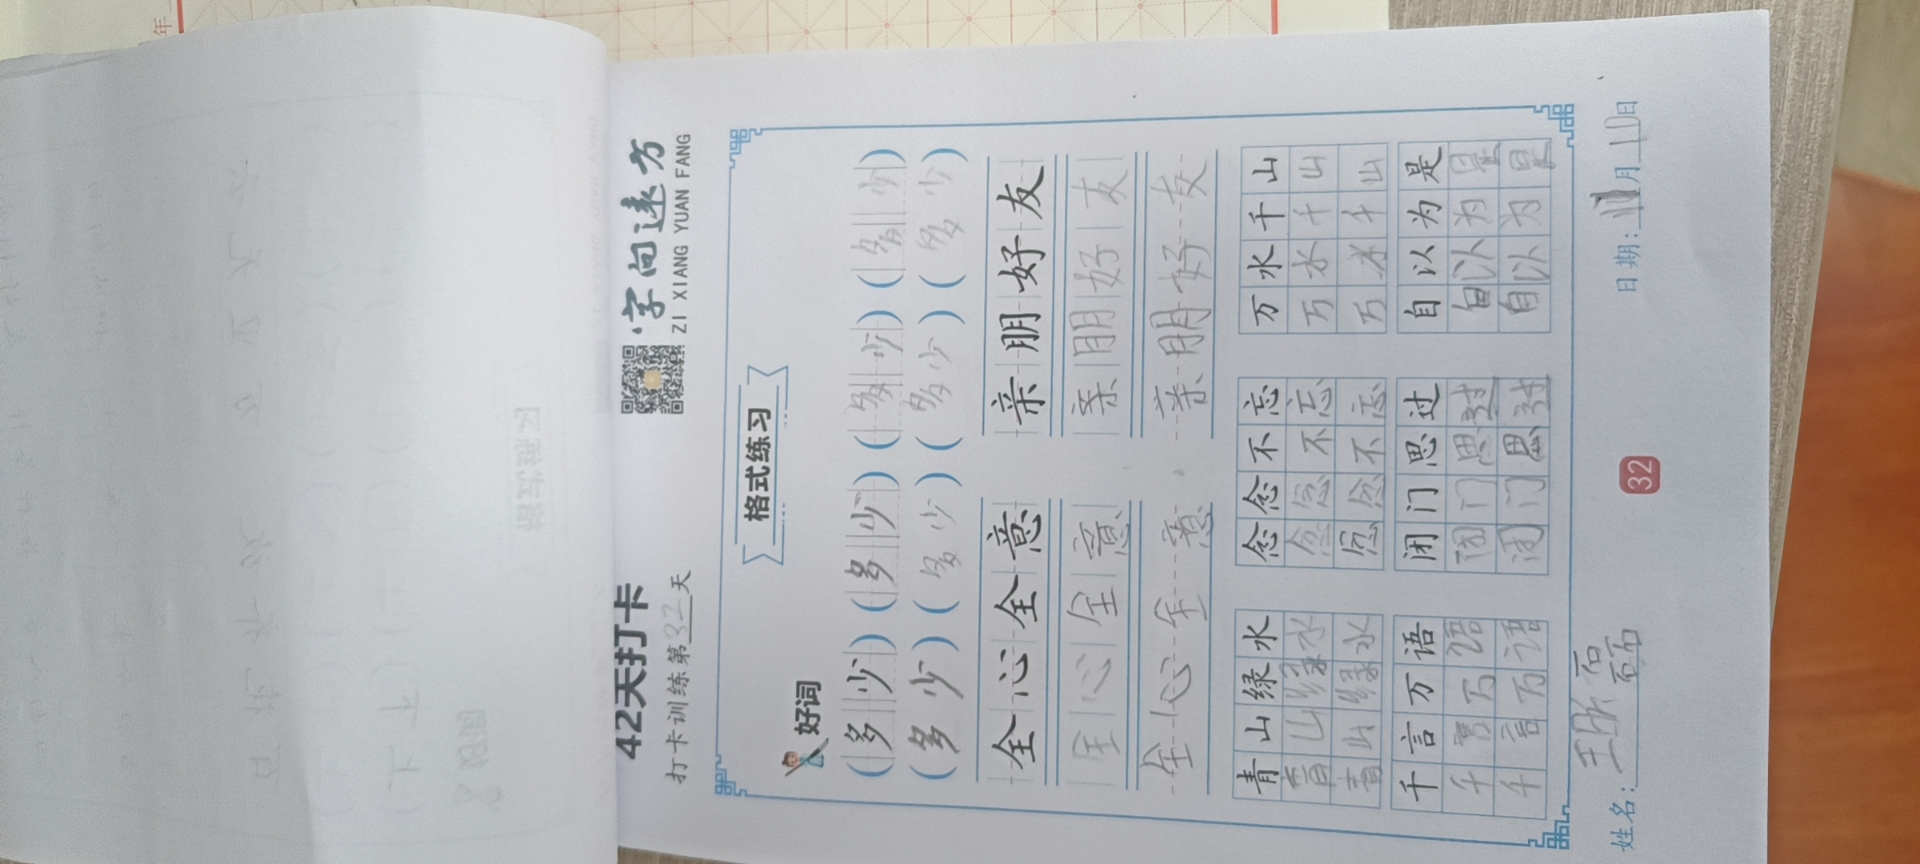 42天打卡
打卡训练第32天
字向远方
ZI XIANG YUAN FANG
格式练习
好词
(多少)(多少)(多少)(多少)
(多少)(多少)(多少)(多少)
全心全意 亲朋好友
全心全意 亲朋好友
全心全意 亲朋好友
青山绿水 念念不忘 万水千山
青山绿水 念念不忘 万水千山
青山绿水 念念不忘 万水千山
千言万语 闭门思过 自以为是
千言万语 闭门思过 自以为是
千言万语 闭门思过 自以为是
姓名: 王 日期: 月10日
32